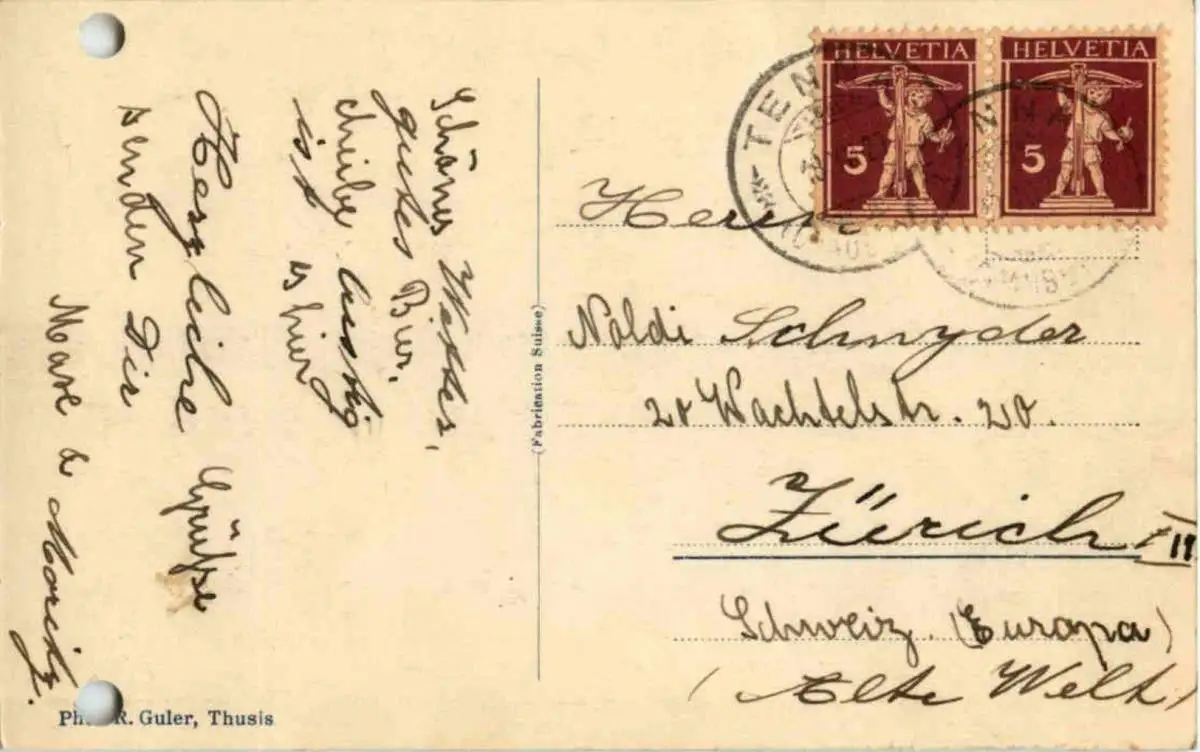 Schönes Wetter,
gutes Bier,
schreibe lustig
ist
es hier
Herzliche Grüsse
senden Dir
Max & Moritz.
(Fabrication Suisse)
Phot. R. Guler, Thusis
HELVETIA HELVETIA
5 5
TENNA
Herrn
Noldi Schnyder
20 Wachtelstr. 20.
Zürich
Schweiz. (Europa)
(Alte Welt)